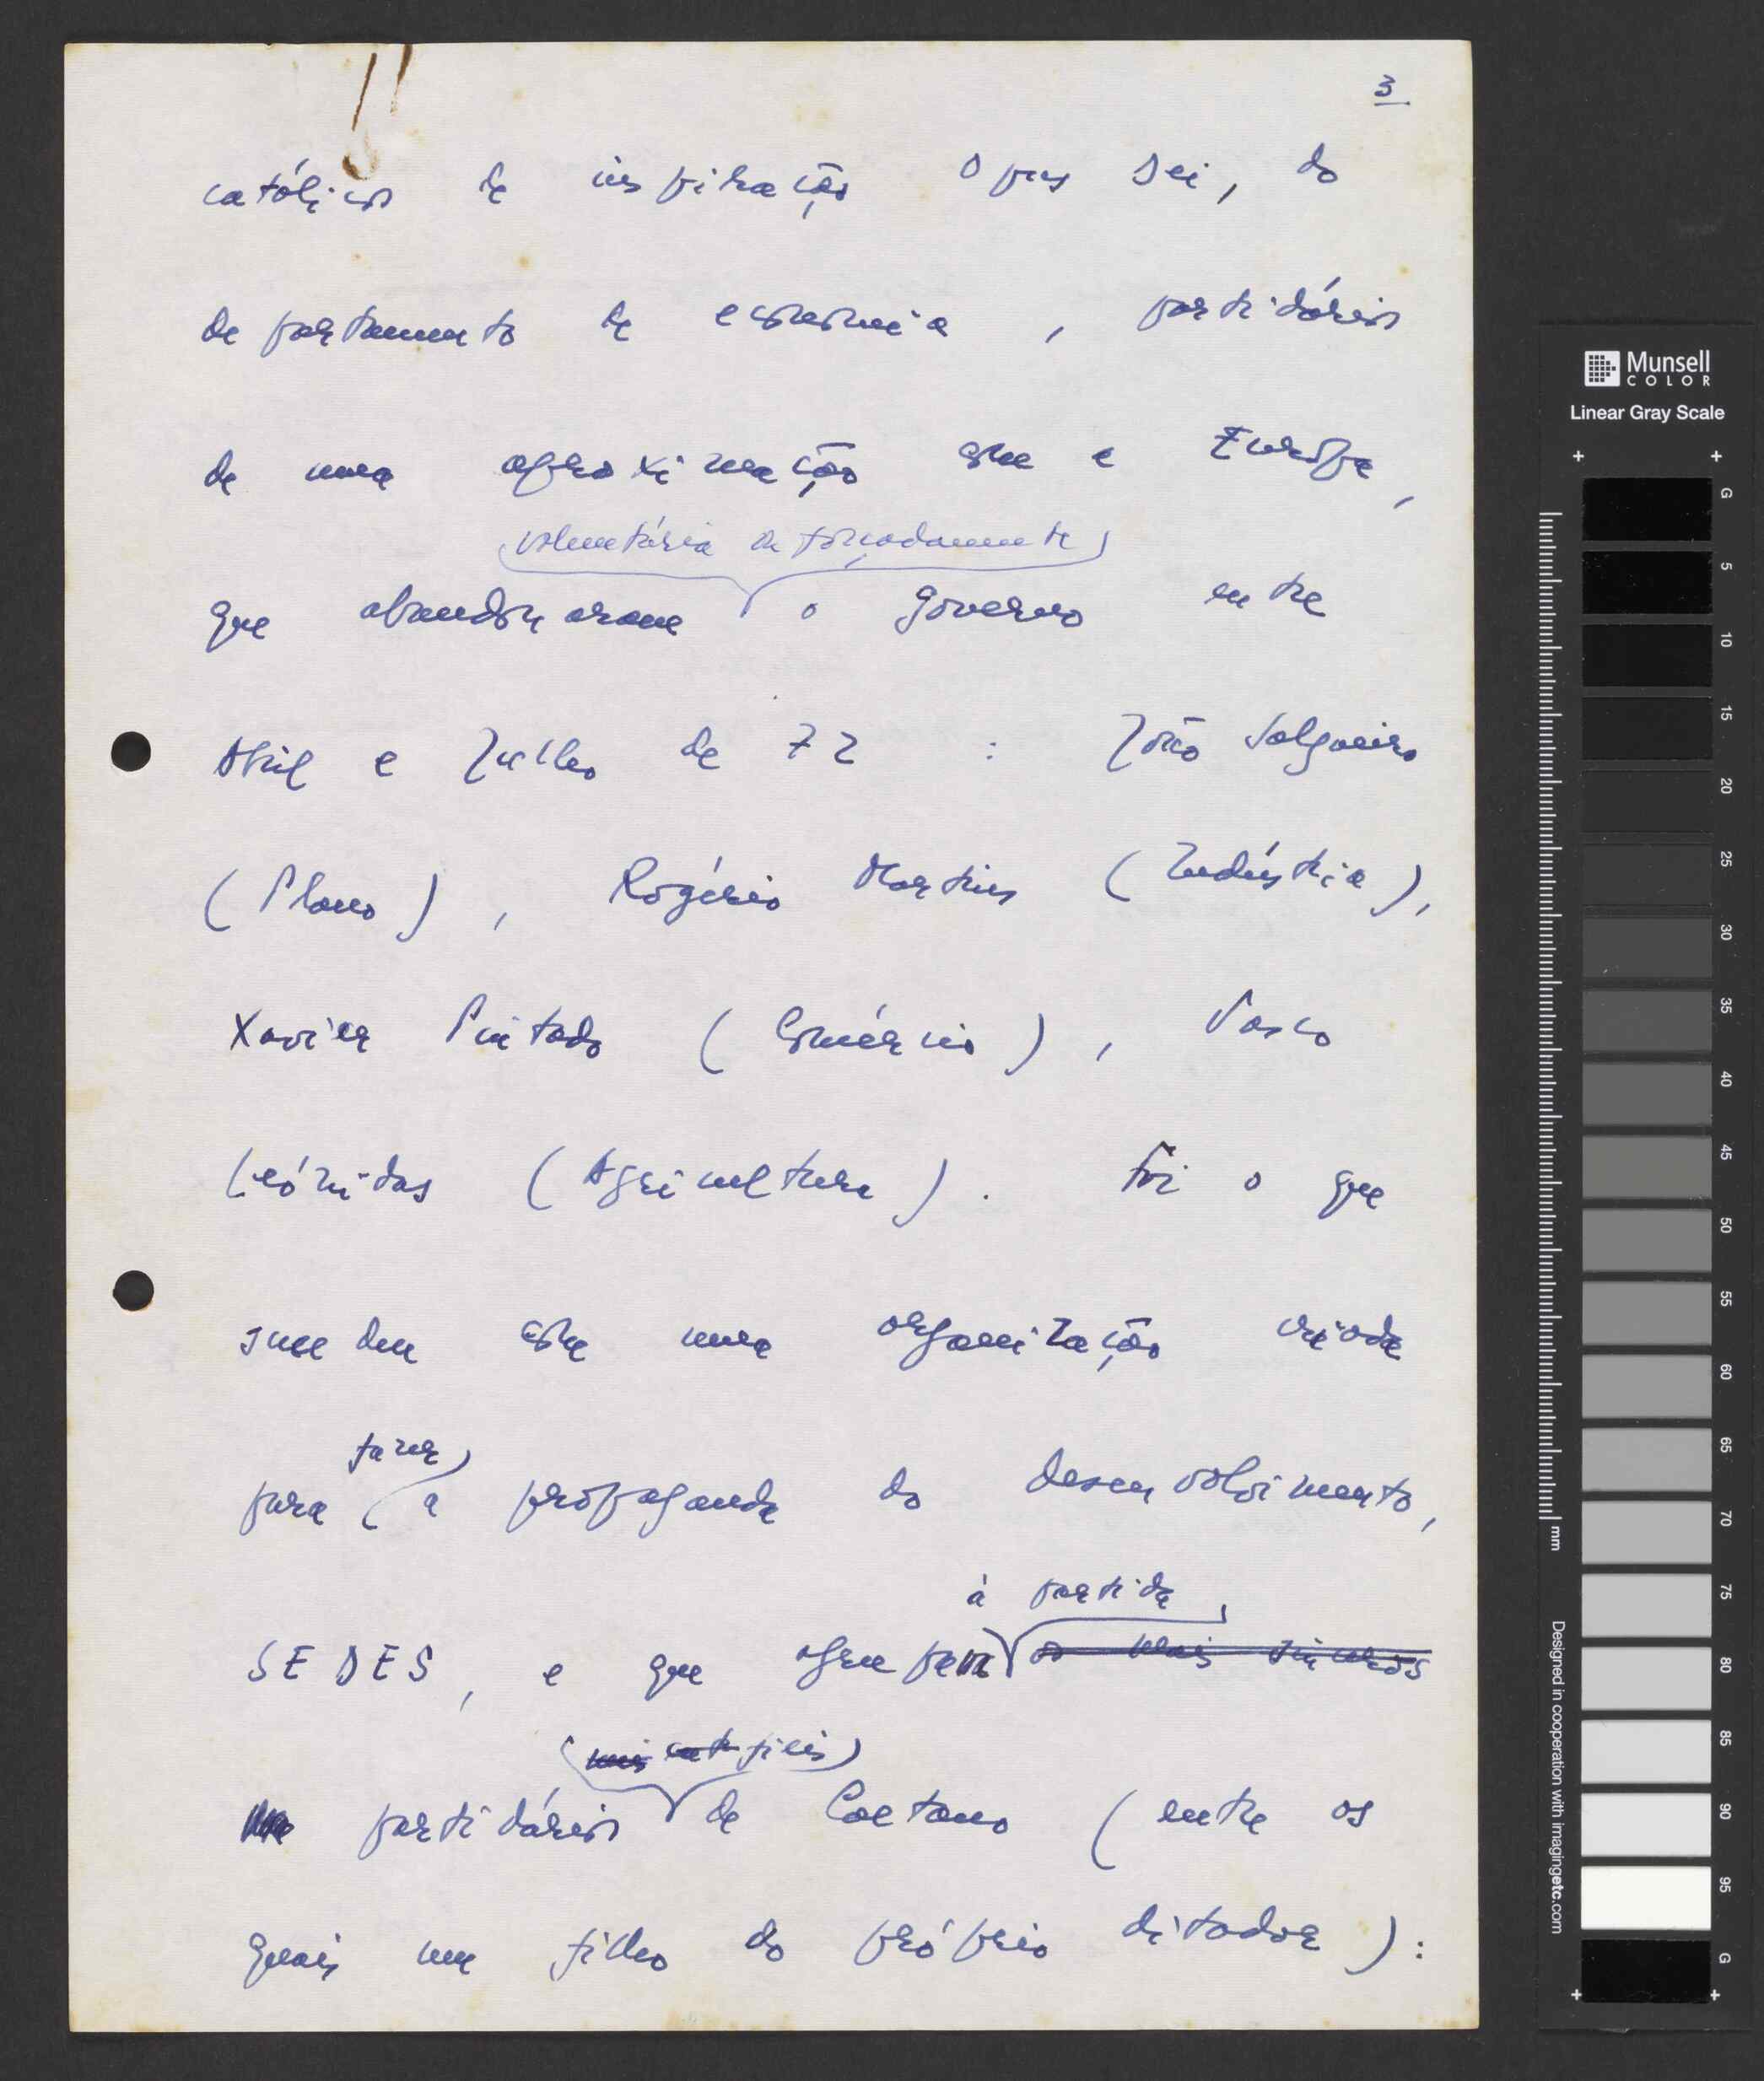 3
católicos de inspiração Opus Dei, do
departamento de economia, partidários
de uma aproximação com a Europa,
voluntária ou forçadamente
que abandonaram o governo entre
Abril e Julho de 72 : João Salgueiro
(Plano), Rogério Martins (Indústria),
Xavier Pintado (Comércio), Vasco
Leónidas (Agricultura). Foi o que
sucedeu com uma organização criada
fazer
para a propaganda do desenvolvimento,
à partida
SEDES, e que agrupava os mais sinceros
fiéis
partidários de Caetano (entre os
quais um filho do próprio ditador):
Munsell
COLOR
Linear Gray Scale
G
5
10
15
20
25
30
35
40
45
50
55
60
65
70
75
80
85
90
95
G
mm
Designed in cooperation with imagingetc.com